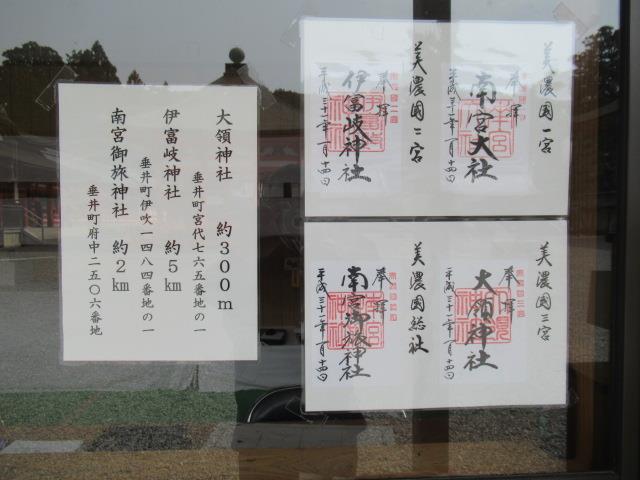 美濃国一宮
奉拝
南宮大社
平成三十一年一月十四日
美濃国二宮
奉拝
伊富岐神社
平成三十一年一月十四日
美濃国三宮
奉拝
大領神社
平成三十一年一月十四日
美濃国総社
奉拝
南宮御旅神社
平成三十一年一月十四日
大領神社 約300m
垂井町宮代七六五番地の一
伊富岐神社 約5km
垂井町伊吹一四八四番地の一
南宮御旅神社 約2km
垂井町府中二五〇六番地